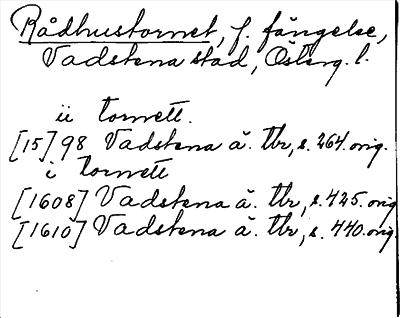 Rådhustornet, f. fängelse,
Vadstena stad, Österg. l.
ii tornett.
[15]98 Vadstena ä. Tbr, s. 264. orig.
i tornett
[1608] Vadstena ä. Tbr, s. 425. orig
[1610] Vadstena ä. Tbr, s. 440. orig.